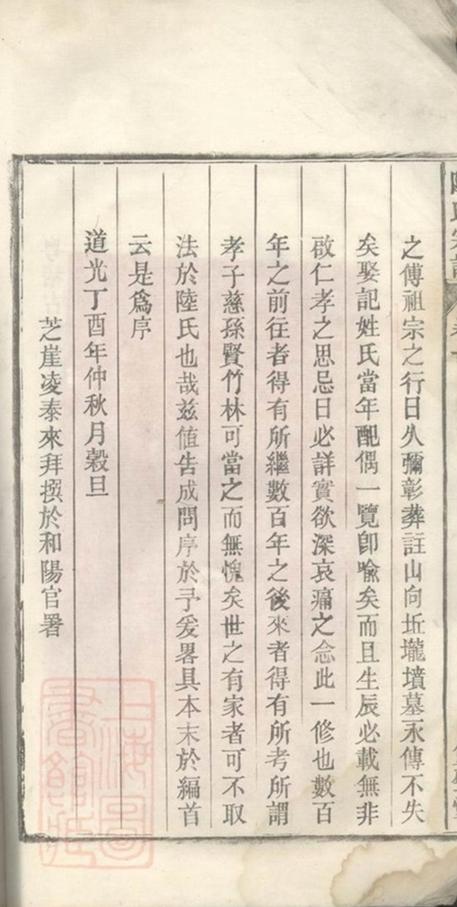 之傳祖宗之行日久彌彰葬註山向坵壠墳墓永傳不失
矣娶記姓氏當年配偶一覽卽喩矣而且生辰必載無非
啟仁孝之思忌日必詳實欲深哀痛之念此一修也數百
年之前往者得有所繼數百年之後來者得有所考所謂
孝子慈孫賢竹林可當之而無愧矣世之有家者可不取
法於陸氏也哉兹値告成問序於予爰畧具本末於編首
云是爲序
道光丁酉年仲秋月穀旦
芝崖凌泰來拜撰於和陽官署